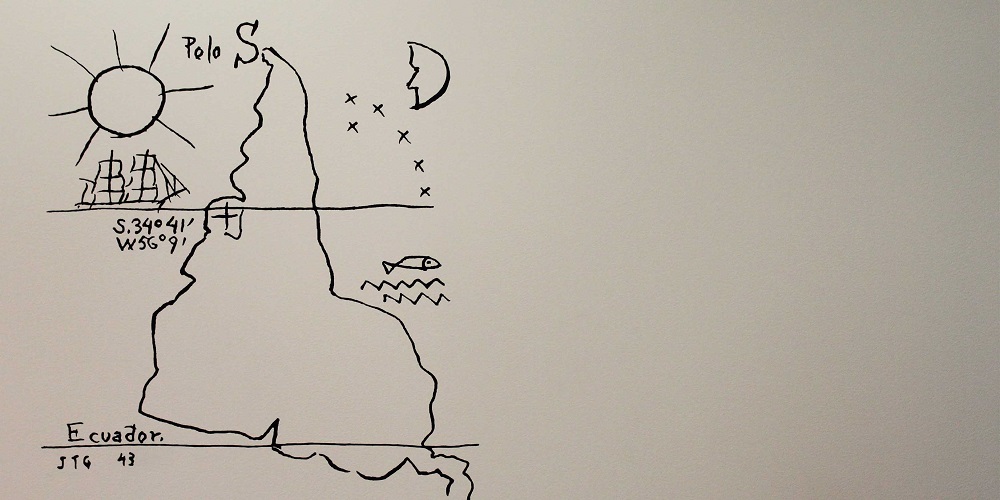 Polo S.
S.34º41'
W56º9'
Ecuador.
JTG 43